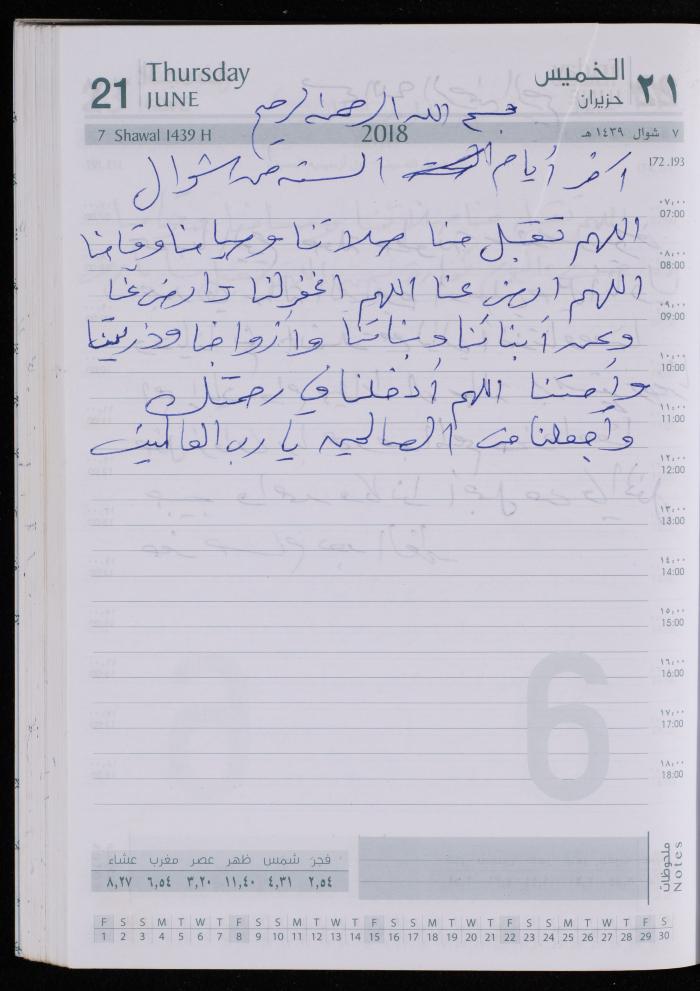 21 Thursday JUNE الخميس حزيران ٢١
بسم الله الرحمن الرحيم
7 Shawal 1439 H 2018 ٧ شوال ١٤٣٩ هـ
172 .193
اخر أيام الستة من شوال
٠٧:٠٠
07:00
اللهم تقبل منا صلاتنا وصيامنا وقيامنا
٠٨:٠٠
08:00
اللهم ارض عنا اللهم اغفر لنا وارض عنا
٠٩:٠٠
09:00
وعن أبنائنا وبناتنا وأزواجنا وذريتنا
١٠:٠٠
10:00
وأحبتنا اللهم أدخلنا في رحمتك
١١:٠٠
11:00
وأجعلنا من الصالحين يا رب العالمين
١٢:٠٠
12:00
١٣:٠٠
13:00
١٤:٠٠
14:00
١٥:٠٠
15:00
١٦:٠٠
16:00
6
١٧:٠٠
17:00
١٨:٠٠
18:00
ملحوظات
Notes
فجر شمس ظهر عصر مغرب عشاء
٢,٥٤ ٤,٣١ ١١,٤٠ ٣,٢٠ ٦,٥٤ ٨,٢٧
F S S M T W T F S S M T W T F S S M T W T F S S M T W T F S
1 2 3 4 5 6 7 8 9 10 11 12 13 14 15 16 17 18 19 20 21 22 23 24 25 26 27 28 29 30